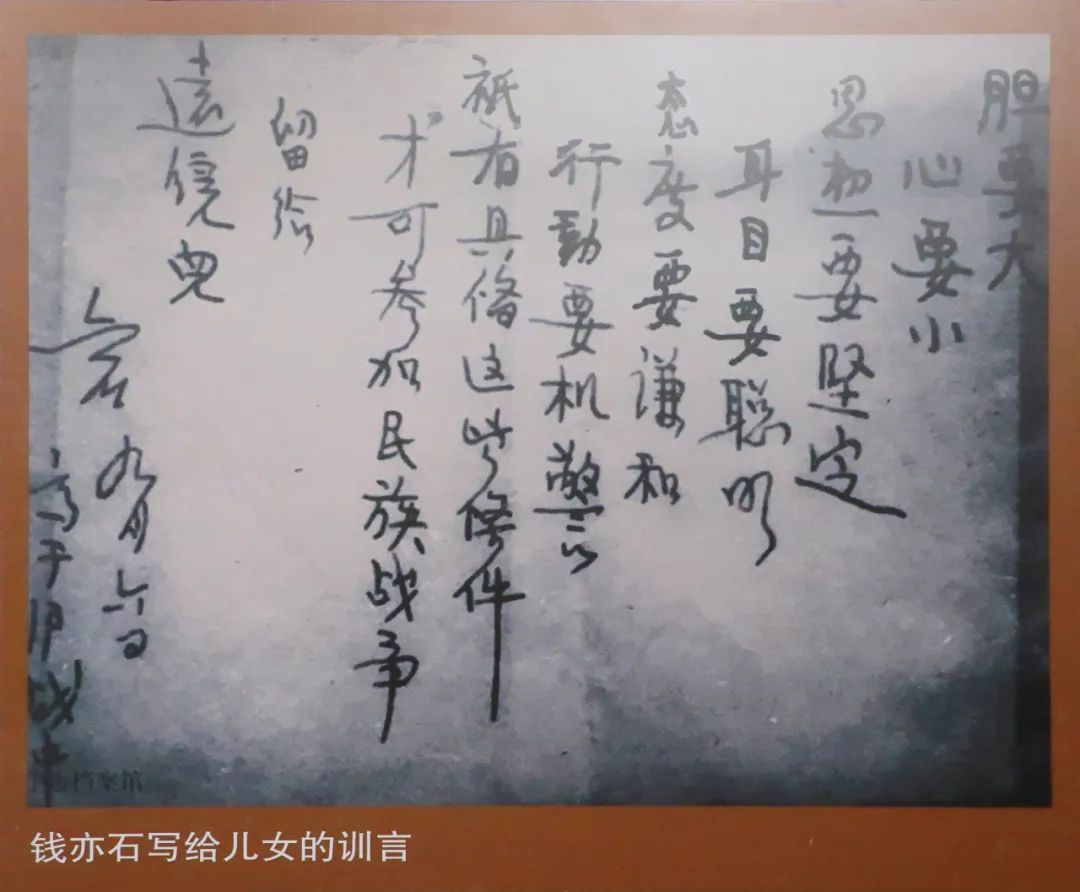 胆要大
心要小
思想要坚定
耳目要聪明
态度要谦和
行動要机警
祇有具俻这些條件
才可参加民族战争
留给
遠镜兒
九月六日
于沪战中
档案馆
钱亦石写给儿女的训言